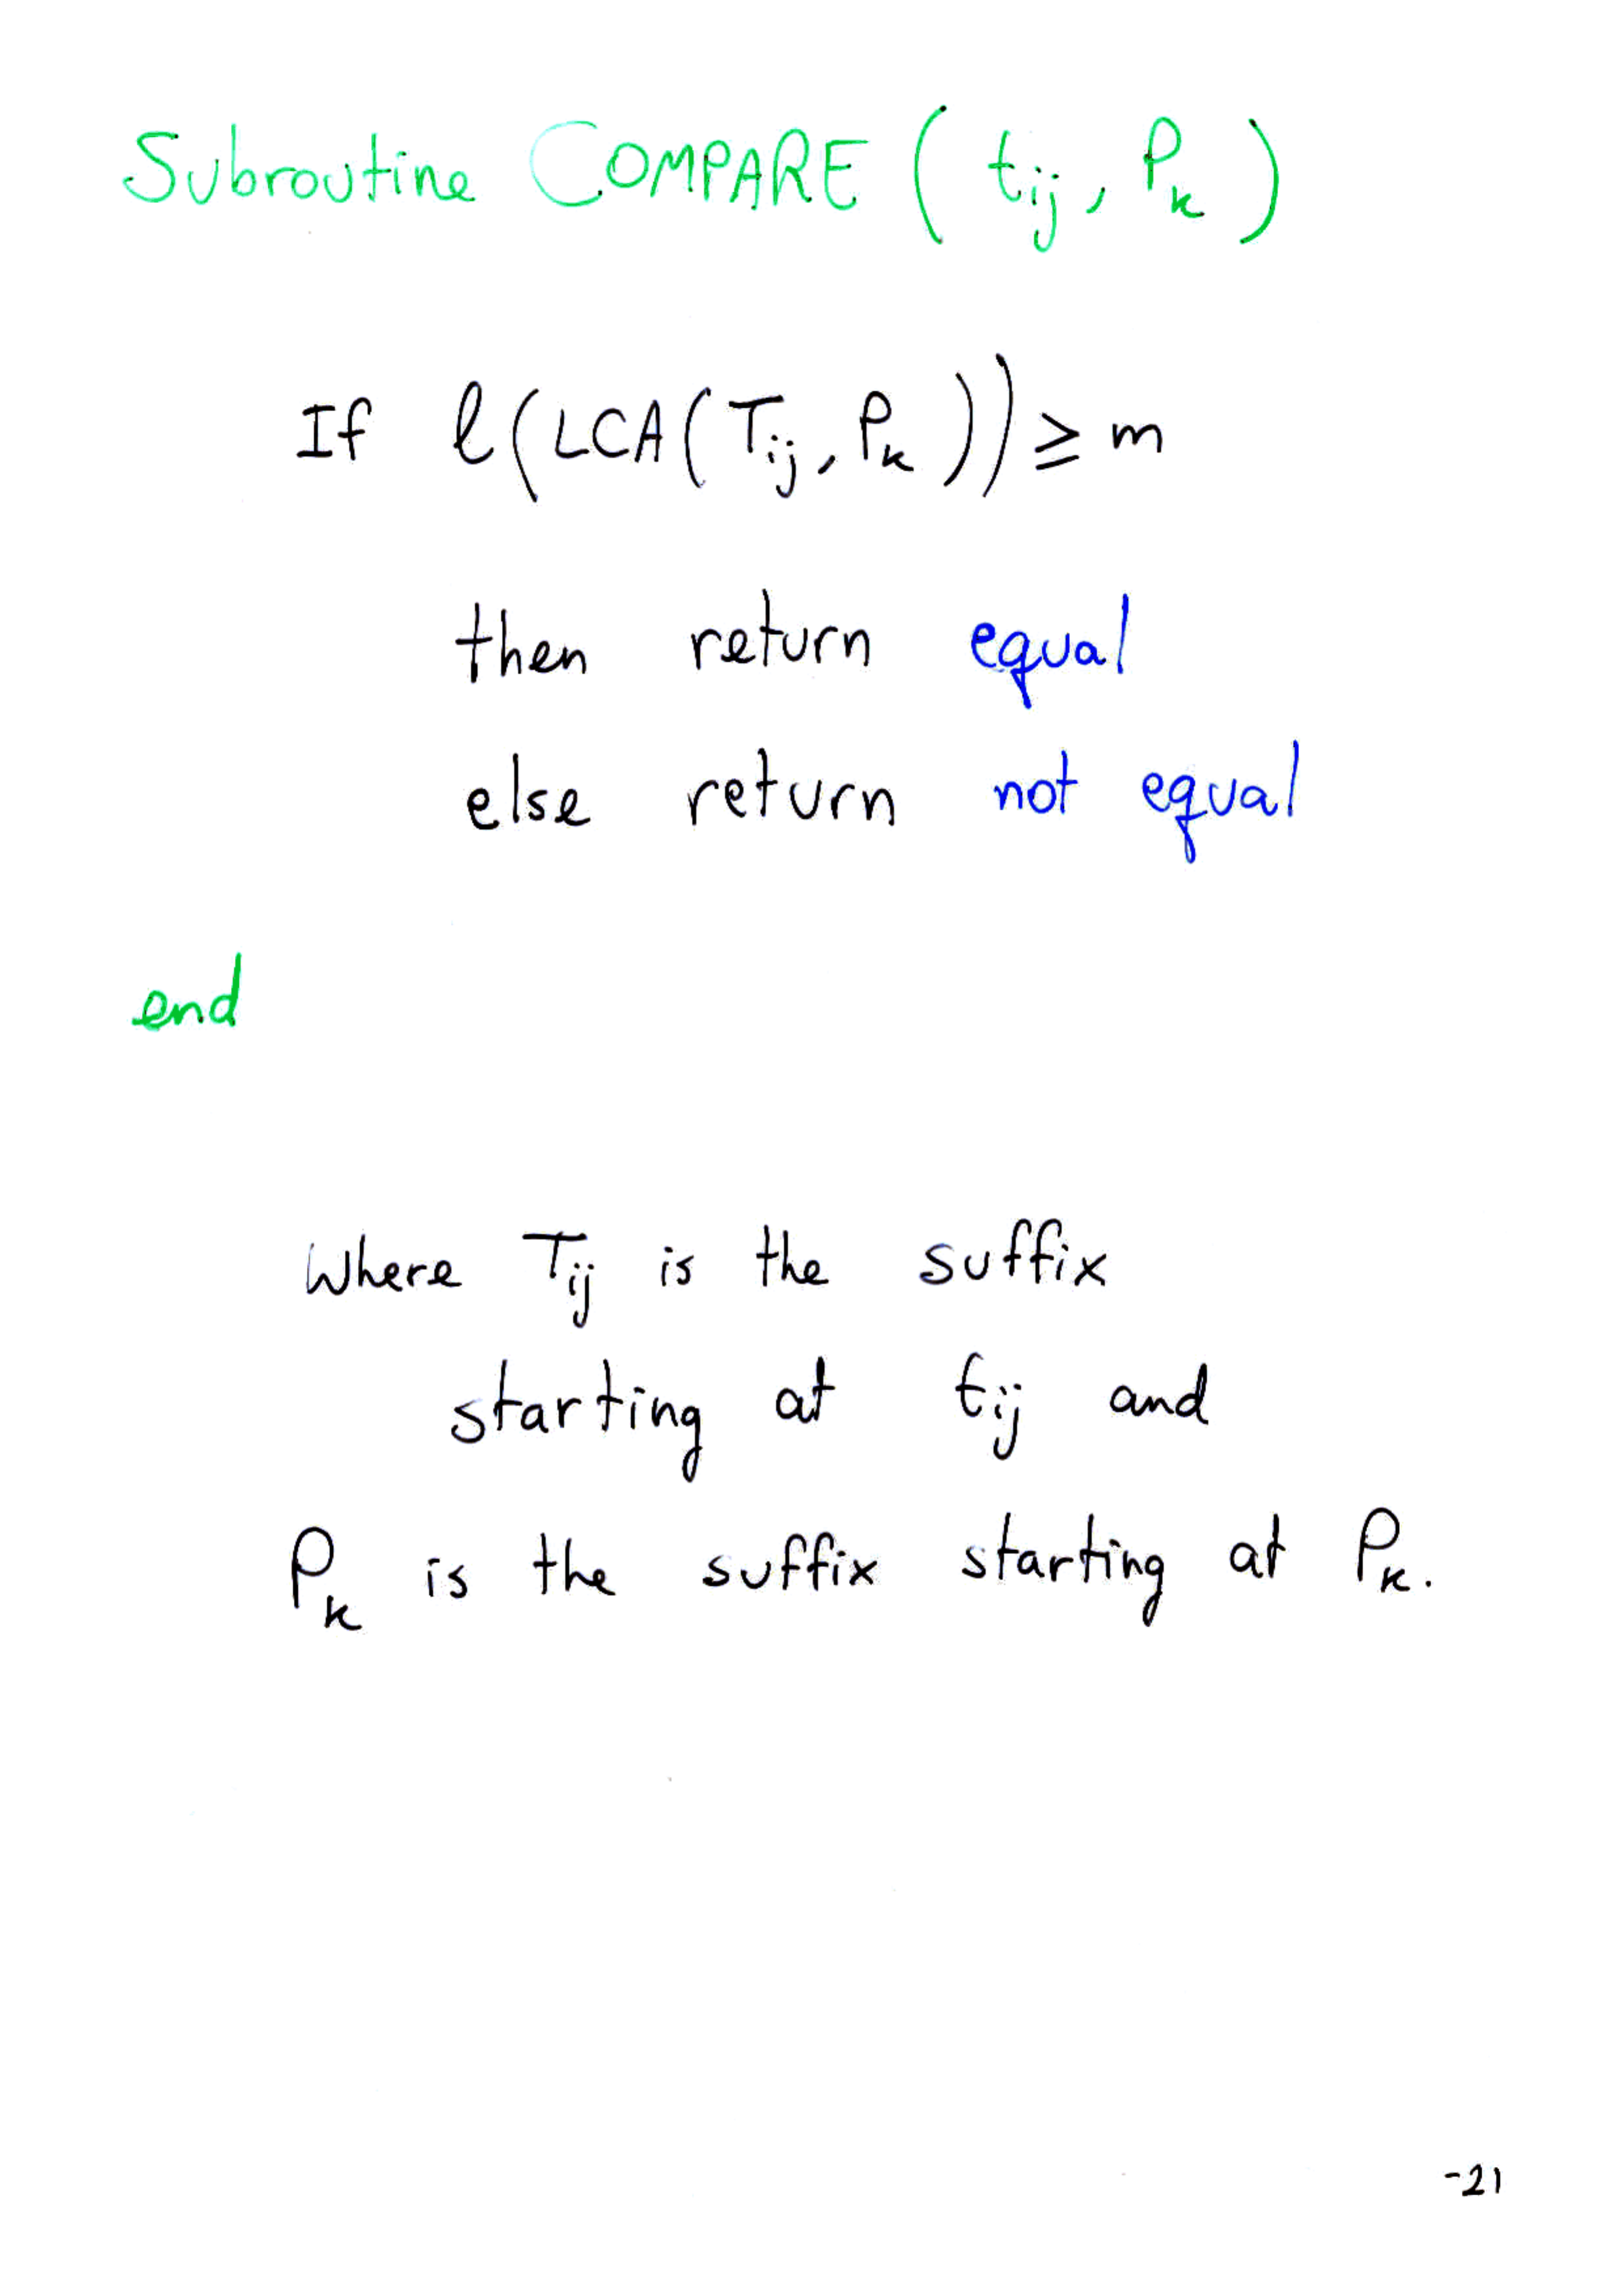 Subroutine COMPARE ( tij, Pk )
If l(LCA(Tij, Pk)) ≥ m
then return equal
else return not equal
end
Where Tij is the suffix
starting at tij and
Pk is the suffix starting at Pk.
-21